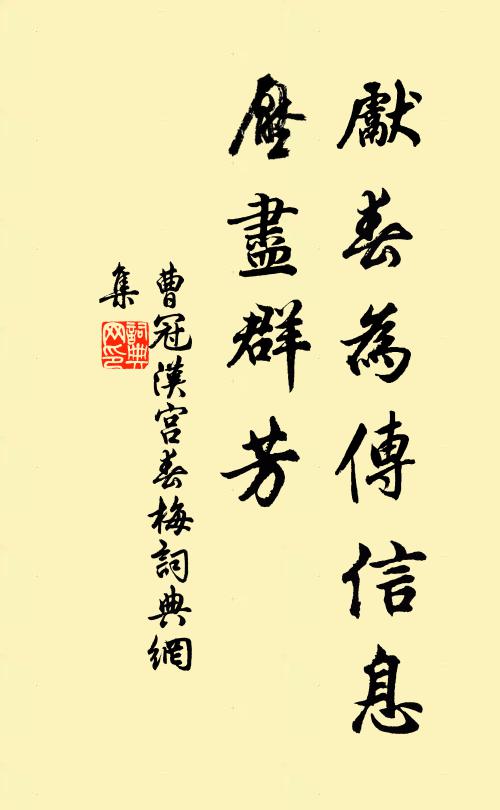 獻春為傳信息
壓盡群芳
曹冠漢宮春梅詞典網
集
詞典
网印